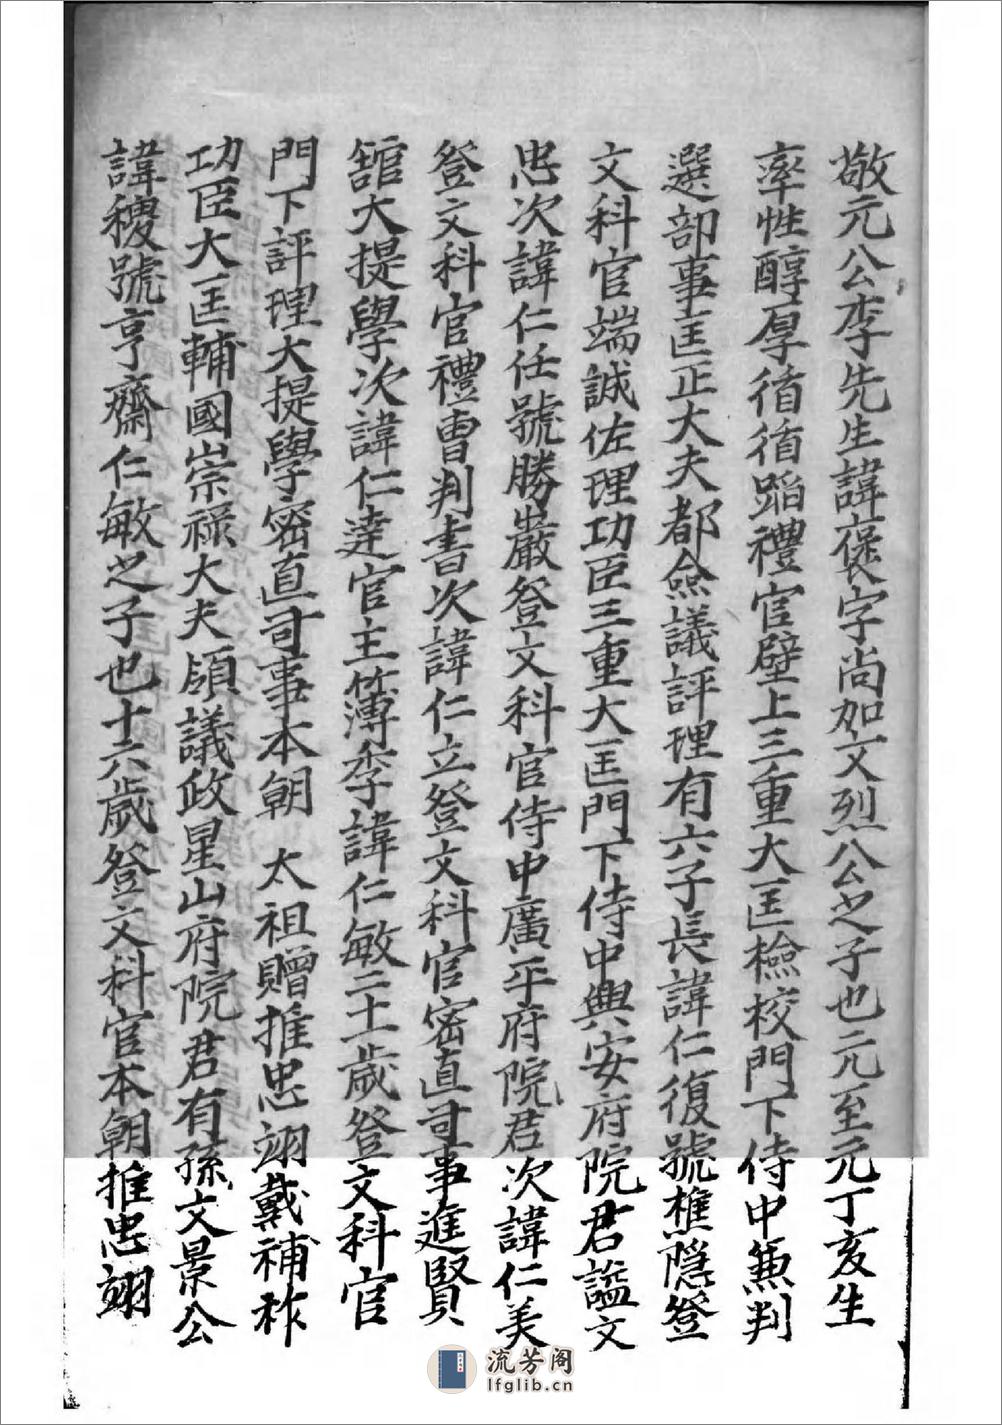 敬元公李先生諱褒字尚加文烈公之子也元至元丁亥生
率性醇厚循循蹈禮官壁上三重大匡檢校門下侍中兼判
選部事匡正大夫都僉議評理有六子長諱仁復號樵隱登
文科官端誠佐理功臣三重大匡門下侍中興安府院君謚文
忠次諱仁任號勝巖登文科官侍中廣平府院君次諱仁美
登文科官禮曹判書次諱仁立登文科官密直司事進賢
舘大提學次諱仁達官主簿李諱仁敏二十一歲登文科官
門下評理大提學密直司事本朝 太祖贈推忠翊戴補祚
功臣大匡輔國崇祿大夫領議政星山府院君有孫文景公
諱稷號亨齋仁敏之子也十六歲登文科官本朝推忠翊
流芳阁
lfglib.cn